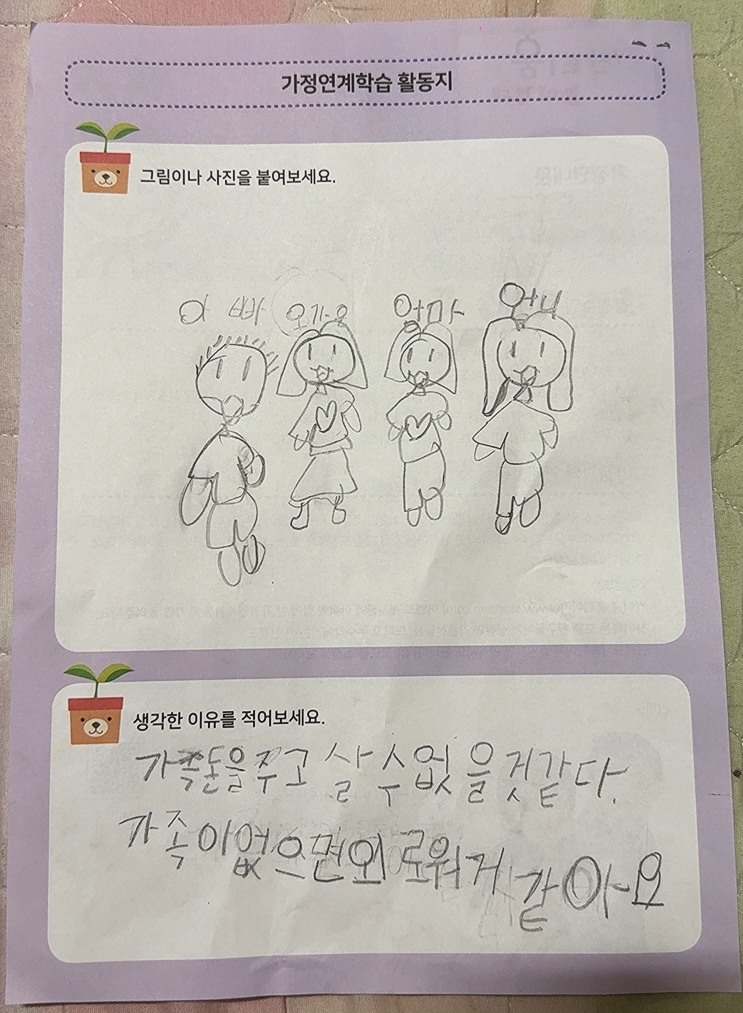 가정연계학습 활동지
그림이나 사진을 붙여보세요.
아빠 엄마 언니
생각한 이유를 적어보세요.
가족돈을주고 살 수 없을것같다.
가족이없으면외로워게 같아요